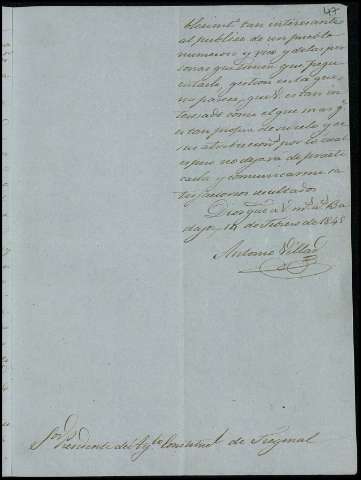 47
blecimto. tan interesante
al publico de un pueblo
numeroso y rico y de las per
sonas que tienen que frecu
entarlo, gestion en la que
me parece, que V. es tan in
teresado como el que mas y
es tan propia de su celo y
sus atribuciones por lo cual
espero no dejará de practi
carla y comunicarme sa
tisfactorios resultados.
Dios gue. a V. ms. as. Ba
dajoz 14 de Febrero de 1848
Antonio Villar
Sor. Presidente del Aymto. Constitnl. de Fregenal